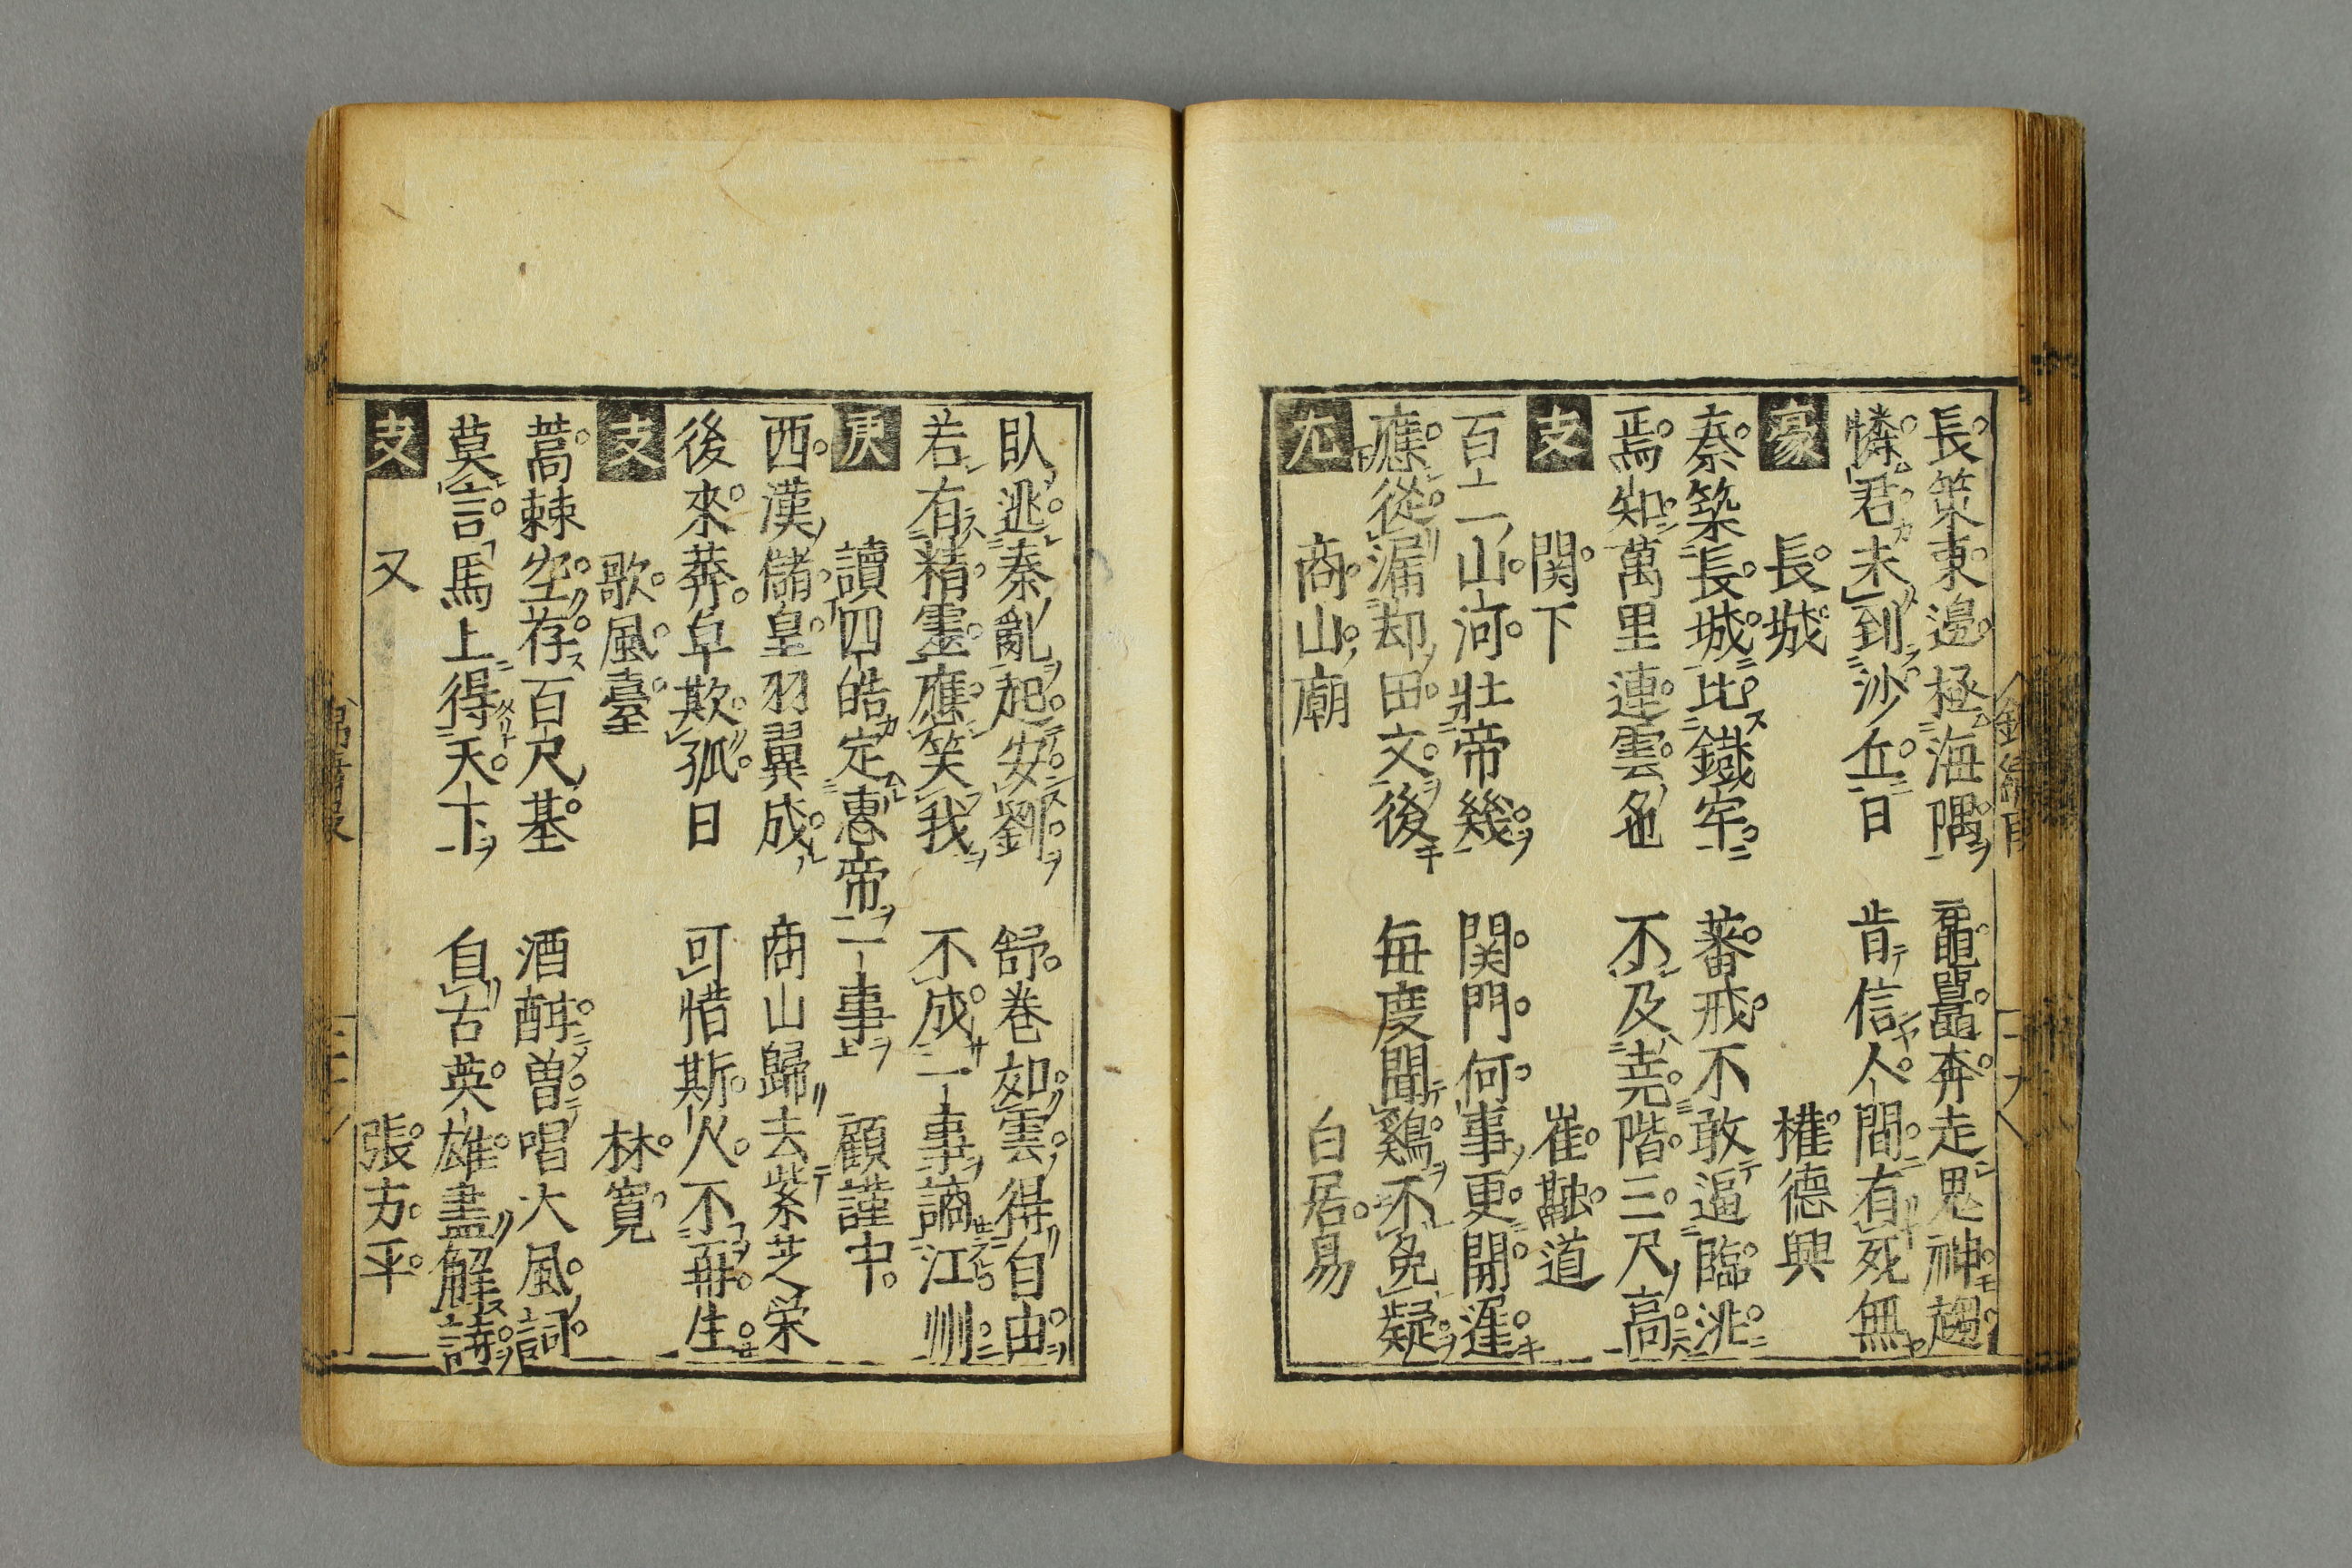 長策東邊極海隅　黿鼉奔走鬼神趨
憐君未到沙丘日　肯信人間有死無
豪　長城　權德輿
秦築長城比鐵牢　蕃戎不敢逼臨洮
焉知萬里連雲色　不及堯階三尺高
支　関下　崔融道
百二山河壯帝幾　関門何事更開遲
應從漏却田文後　每度聞鷄不免疑
尤　商山廟　白居易
臥逃秦亂起安劉　舒卷如雲得自由
若有精靈應笑我　不成一事謫江州
庚　讀四皓定惠帝一事　顧謹中
西漢儲皇羽翼成　商山歸去紫芝栄
後來莽卓欺孤日　可惜斯人不再生
支　歌風臺　林寬
蒿棘空存百尺基　酒酣曽唱大風詞
莫言馬上得天下　自古英雄盡解詩
支　又　張方平